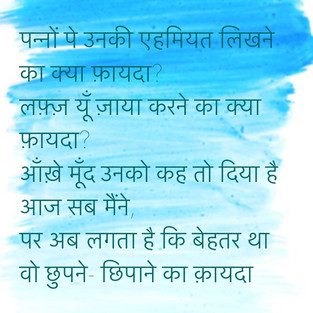 पन्नों पे उनकी एहमियत लिखने
का क्या फ़ायदा?
लफ़्ज़ यूँ ज़ाया करने का क्या
फ़ायदा?
आँख़े मूँद उनको कह तो दिया है
आज सब मैंने,
पर अब लगता है कि बेहतर था
वो छुपने- छिपाने का क़ायदा